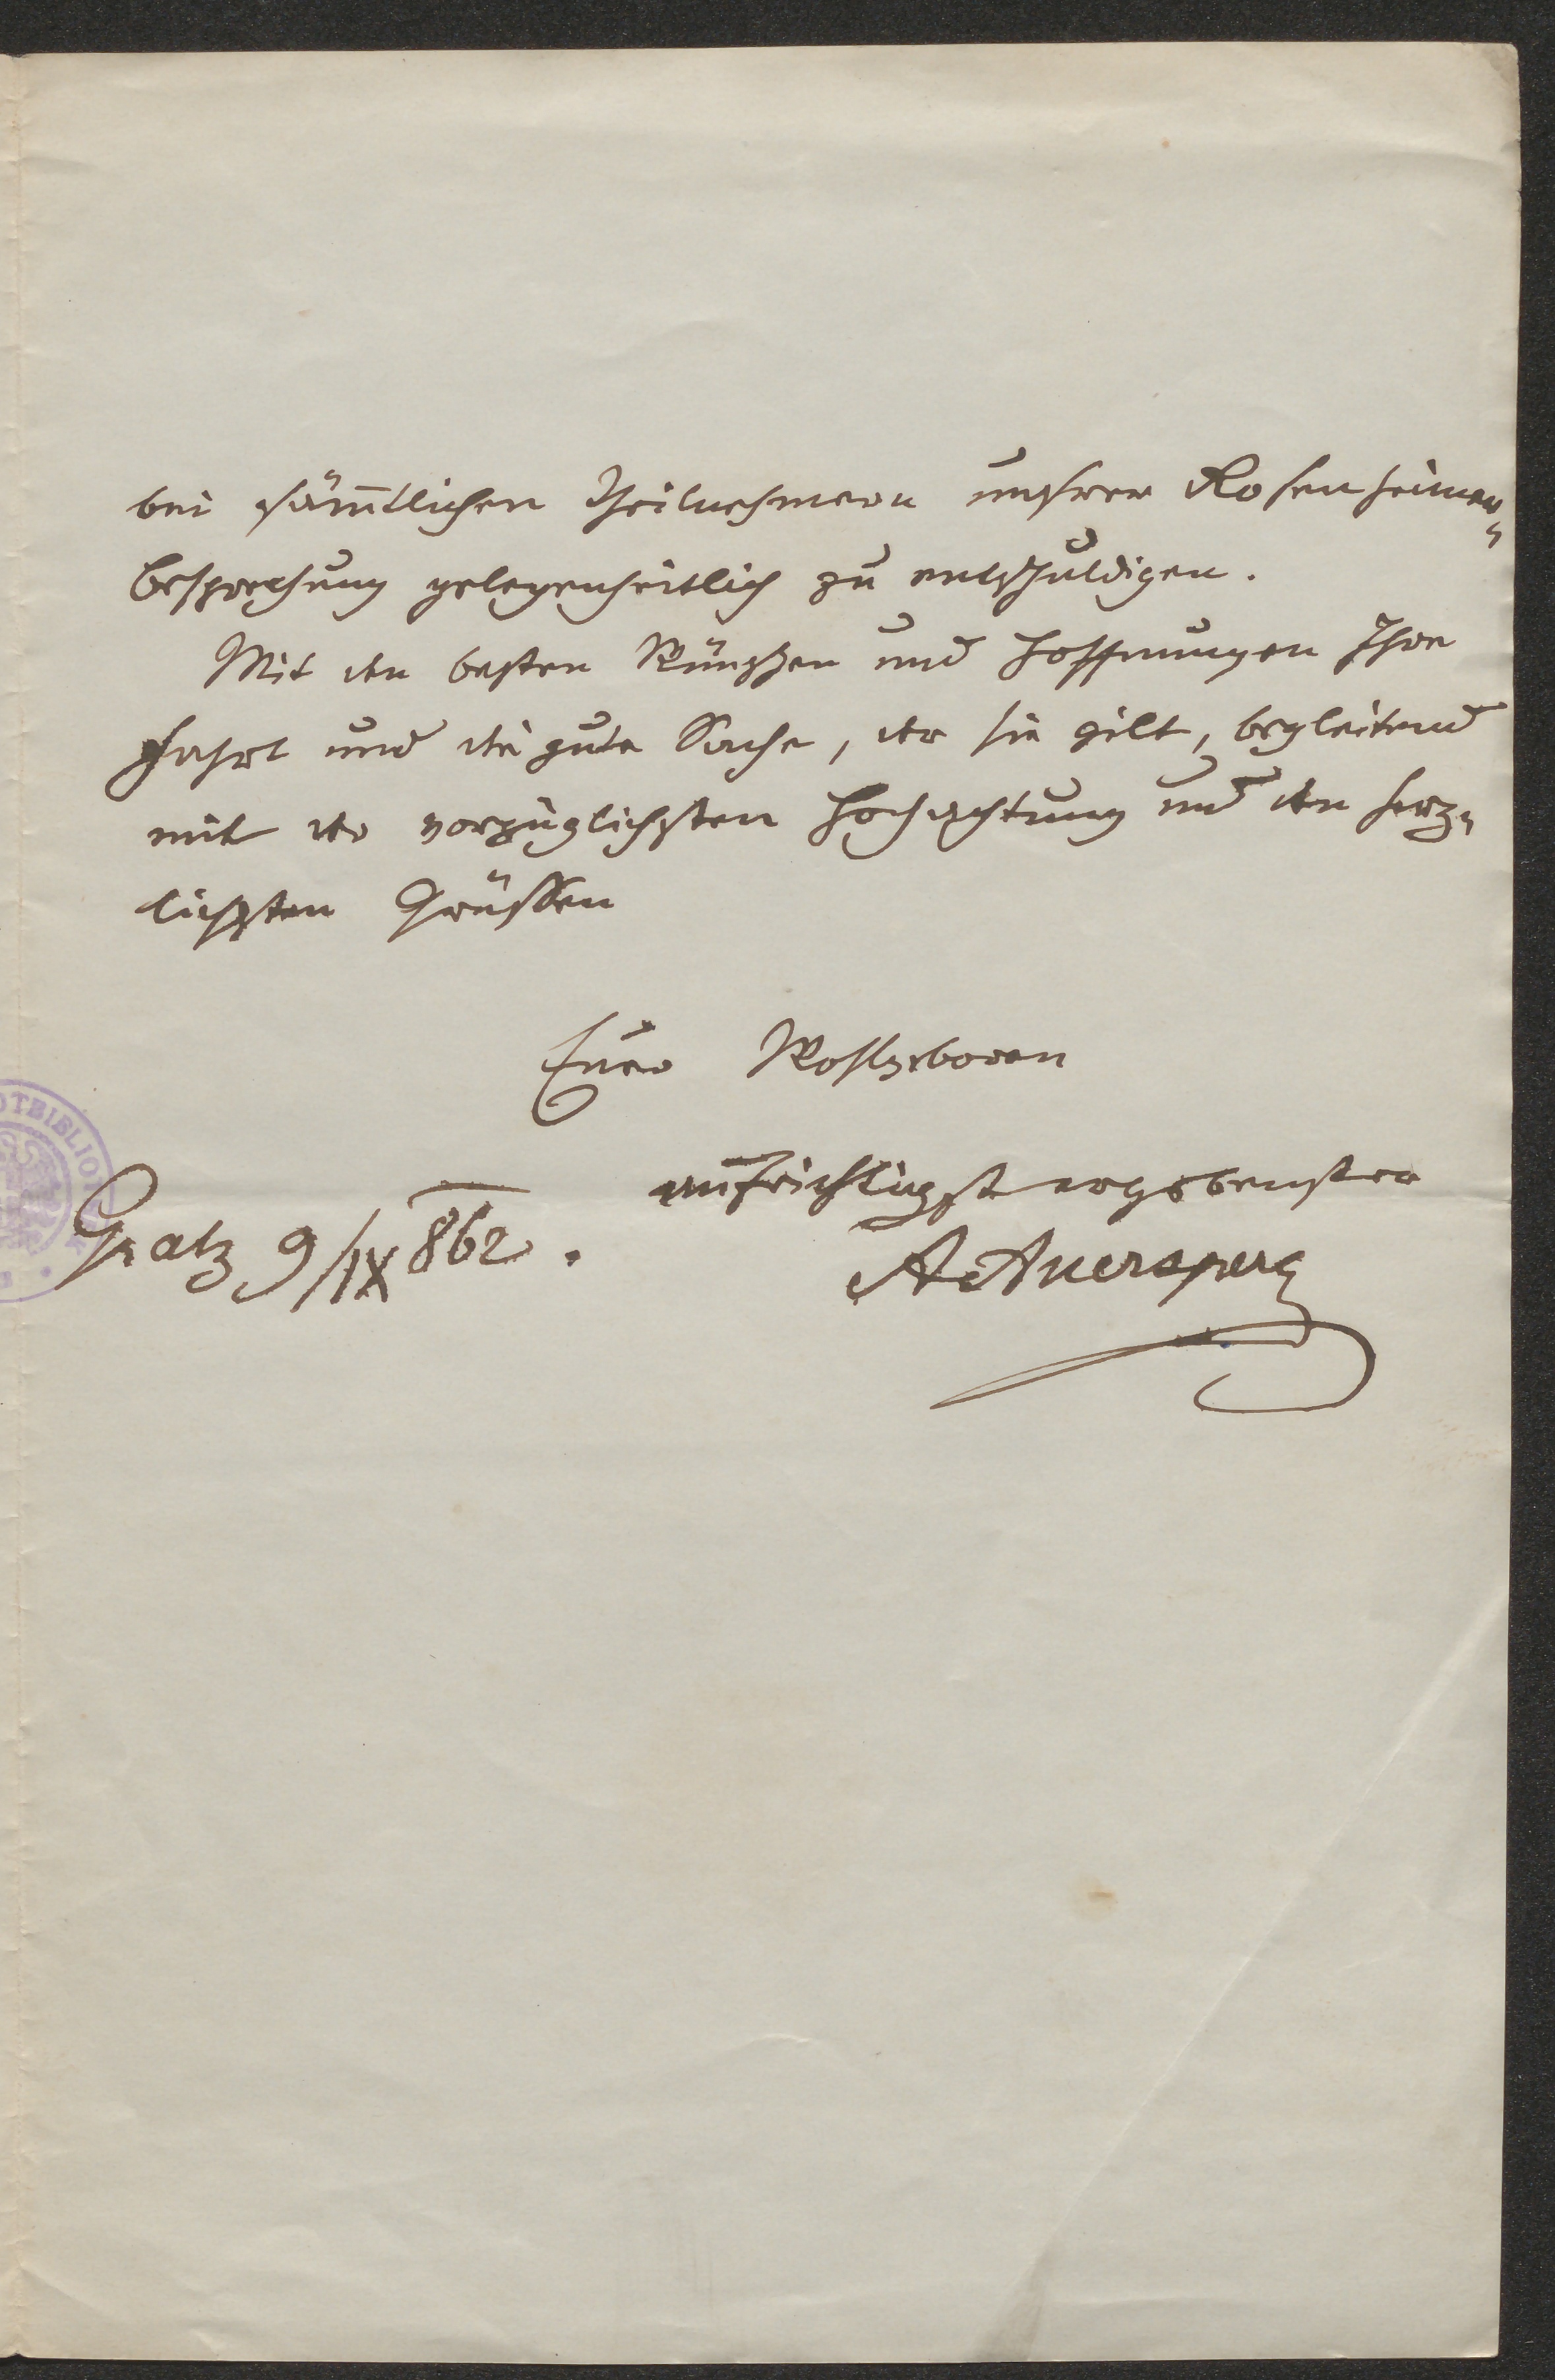 bei sämmtlichen Theilnehmern unsrer Rosenheimer-
besprechung gelegenheitlich zu entschuldigen.
Mit den besten Wünschen und Hoffnungen Ihre
Fahrt und die gute Sache, der sie gilt, begleitend
mit der vorzüglichsten Hochachtung und den herz-
lichsten Grüssen
Euer Wohlgeboren
aufrichtigst ergebenster
Gratz 9/IX 862.
AAuersperg